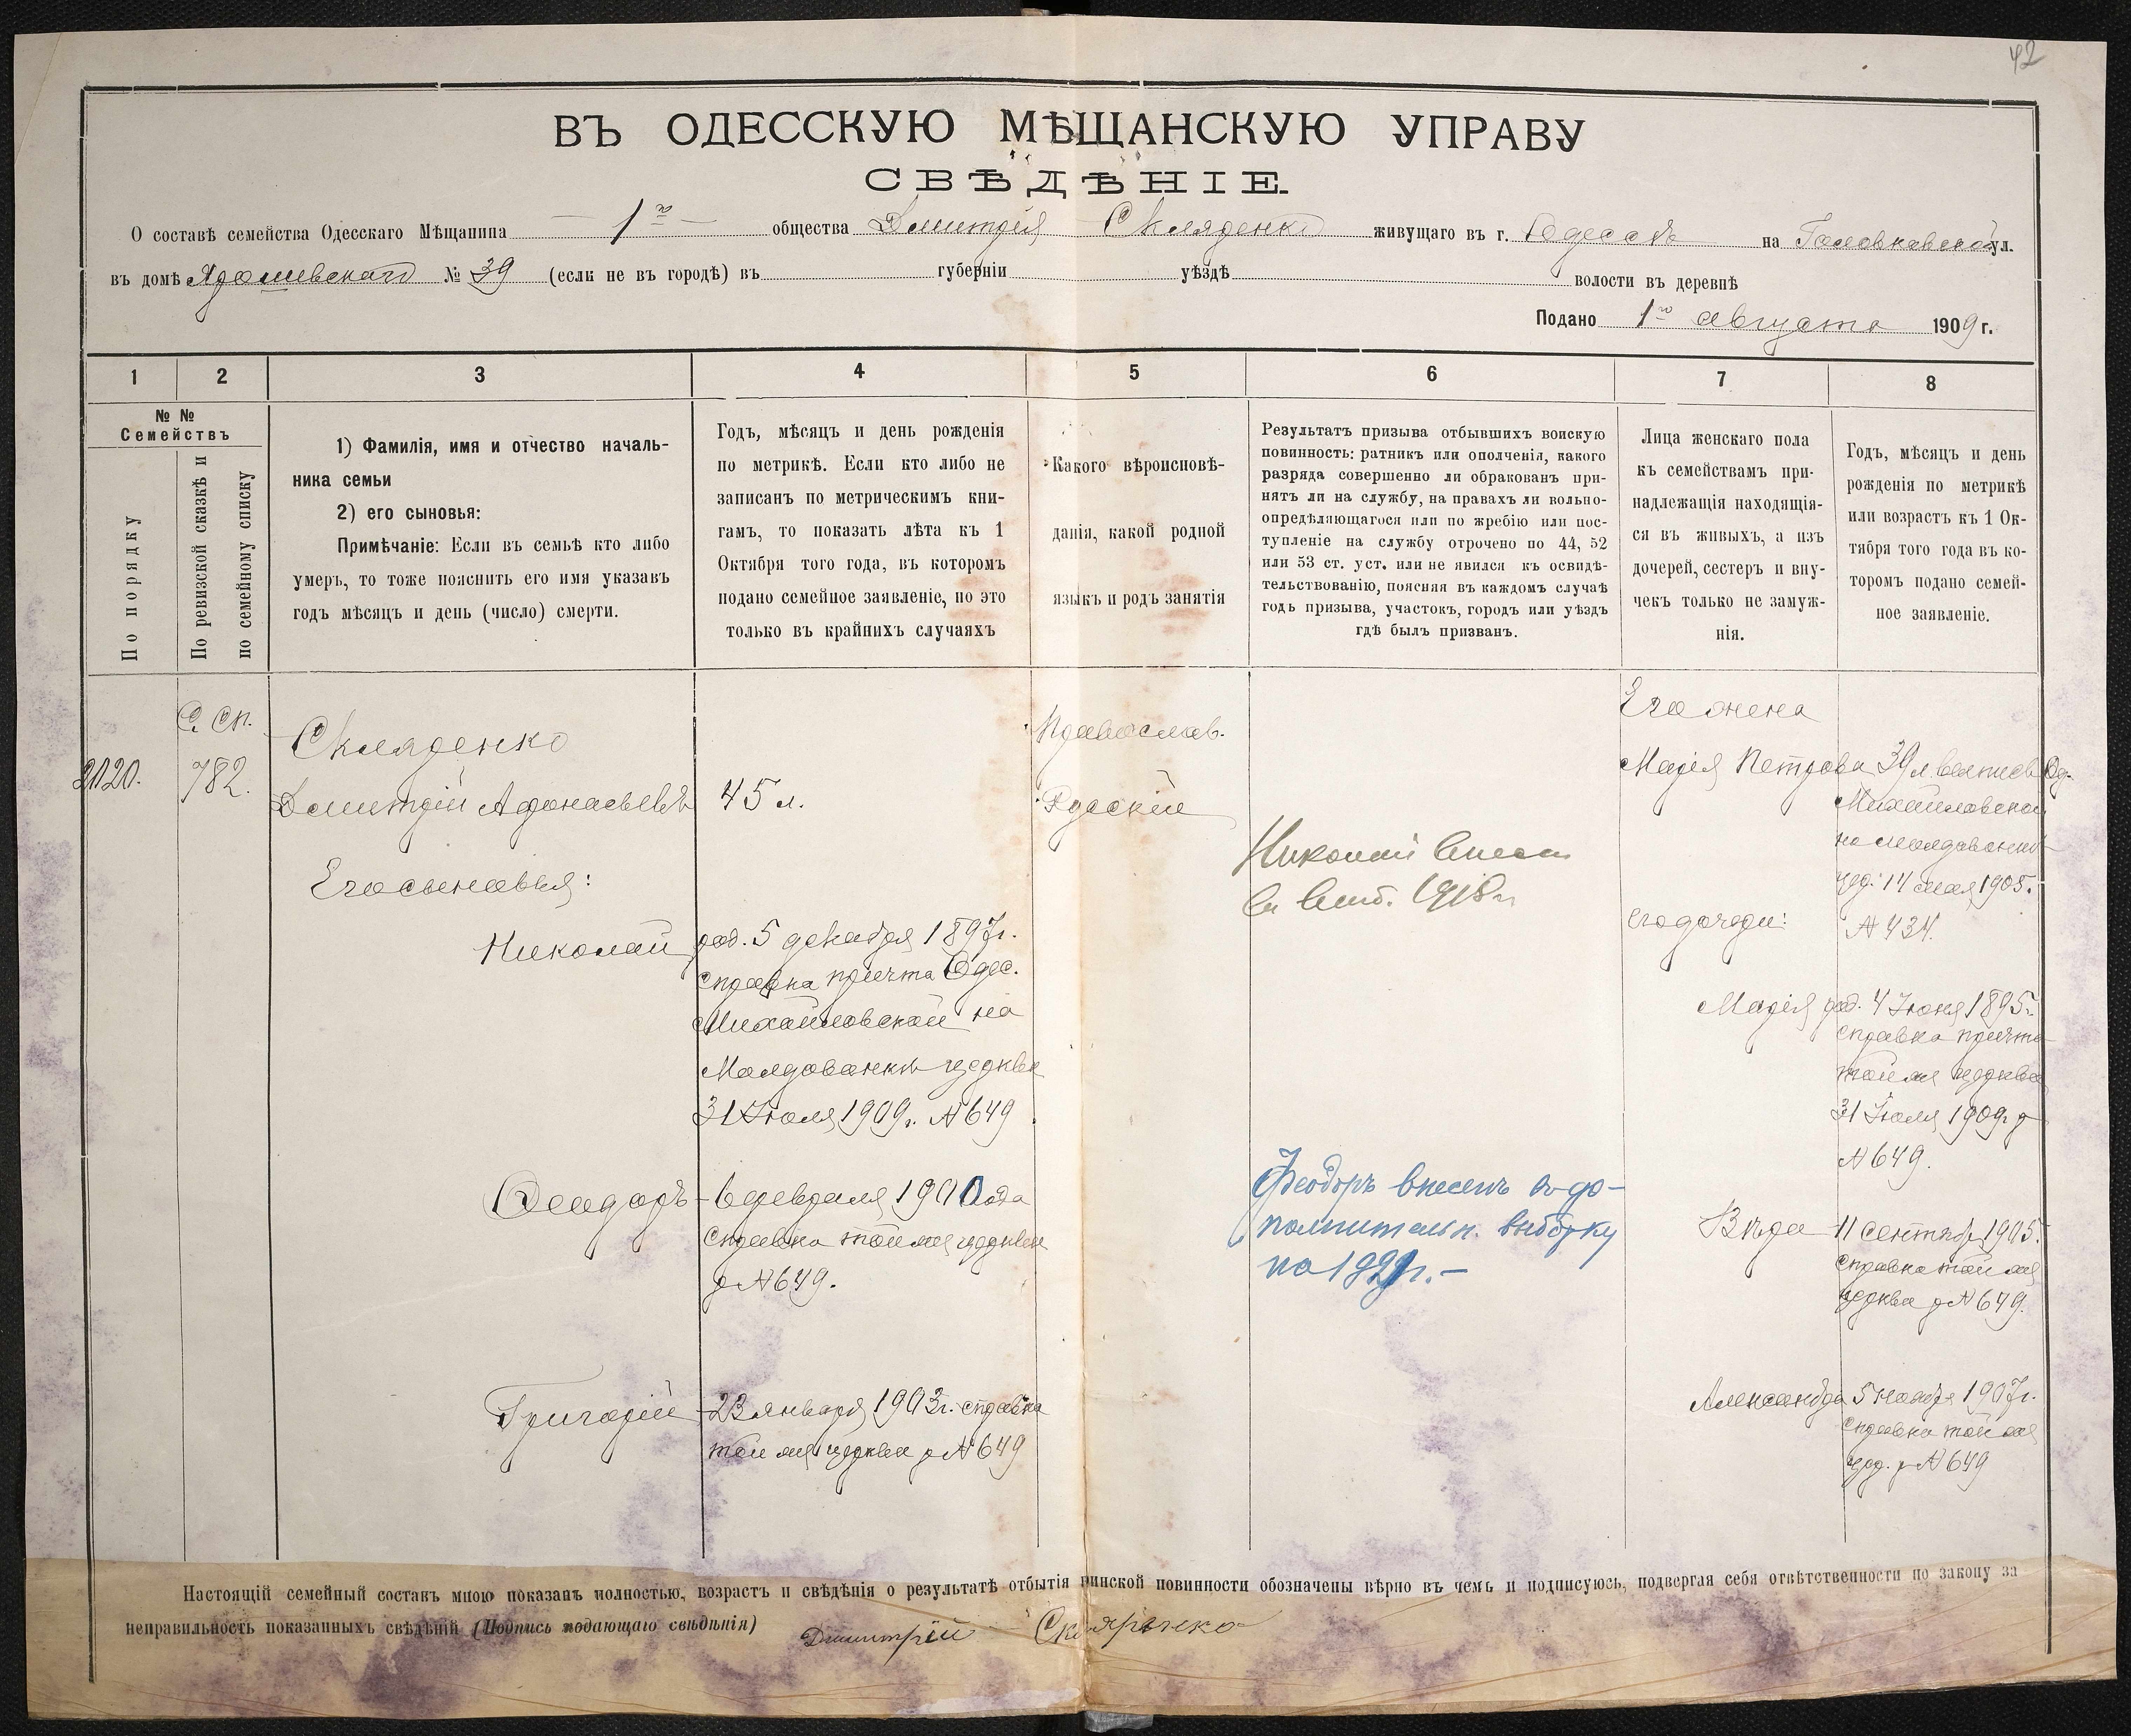 42
ВЪ ОДЕССКУЮ МѢЩАНСКУЮ УПРАВУ
СВѢДѢНІЕ.
О составѣ семейства Одесскаго Мѣщанина 1го общества Дмитрія Скляренко живущаго въ г. Одессѣ на Головковской ул.
въ домѣ Ярошевскаго № 39 (если не въ городѣ) въ губерніи уѣздѣ волости въ деревнѣ
Подано 1го августа 1909 г.
1 2 3 4 5 6 7 8
№ № Семействъ
По порядку
По ревизской сказкѣ и по семейному списку
1) Фамилія, имя и отчество началь-
ника семьи
2) его сыновья:
Примѣчаніе: Если въ семьѣ кто либо
умеръ, то тоже пояснить его имя указавъ
годъ мѣсяцъ и день (число) смерти.
Годъ, мѣсяцъ и день рожденія
по метрикѣ. Если кто либо не
записанъ по метрическимъ кни-
гамъ, то показать лѣта къ 1
Октября того года, въ которомъ
подано семейное заявленіе, но это
только въ крайнихъ случаяхъ
Какого вѣроисповѣ-
данія, какой родной
языкъ и родъ занятія
Результатъ призыва отбывшихъ воискую
повинность: ратникъ или ополченія, какого
разряда совершенно ли обракованъ при-
нятъ ли на службу, на правахъ ли вольно-
опредѣляющагося или по жребію или пос-
тупленіе на службу отрочено по 44, 52
или 53 ст. уст. или не явился къ освидѣ-
тельствованію, поясняя въ каждомъ случаѣ
годъ призыва, участокъ, городъ или уѣздъ
гдѣ былъ призванъ.
Лица женскаго пола
къ семействамъ при-
надлежащія находящія-
ся въ живыхъ, а изъ
дочерей, сестеръ и вну-
чекъ только не замуж-
нія.
Годъ, мѣсяцъ и день
рожденія по метрикѣ
или возрастъ къ 1 Ок-
тября того года въ ко-
торомъ подано семей-
ное заявленіе.
2120.
С. сп.
782.
Скляренко
Дмитрій Афонасьевъ
Его сыновья:
Николай
Феодоръ
Григорій
45 л.
род. 5 декабря 1897г.
справка причта Одес.
Михайловской на
Молдованкѣ церкви
31 Іюля 1909г. № 649
6 февраля 1900 года
справка той же церкви
р № 649.
23 января 1903г. справка
той же церкви р № 649
Православ.
Русскій
Николай внесен
въ 1918г
Феодоръ внесенъ въ до-
полнительн. выборку
на 1921г.
Его жена
Марія Петрова
его дочери:
Марія
Вѣра
Александра
39 л. Од.
Михайловской
на молдаванкѣ
цер. 14 мая 1905.
№ 434.
род. 4 Іюня 1895г.
справка причта
той же церкви
31 Іюля 1909г р
№ 649.
11 сентяб. 1905.
справка той же
церкви р № 649.
5 ноября 1907г.
справка той же
цер. р № 649
Настоящій семейный составъ мною показанъ полностью, возрастъ и свѣдѣнія о результатѣ отбытія винской повинности обозначены вѣрно въ чемъ и подписуюсь, подвергая себя отвѣтственности по закону за
неправильность показанныхъ свѣдѣній (Подпись подающаго свѣдѣнія) Дмитрій Скляренко